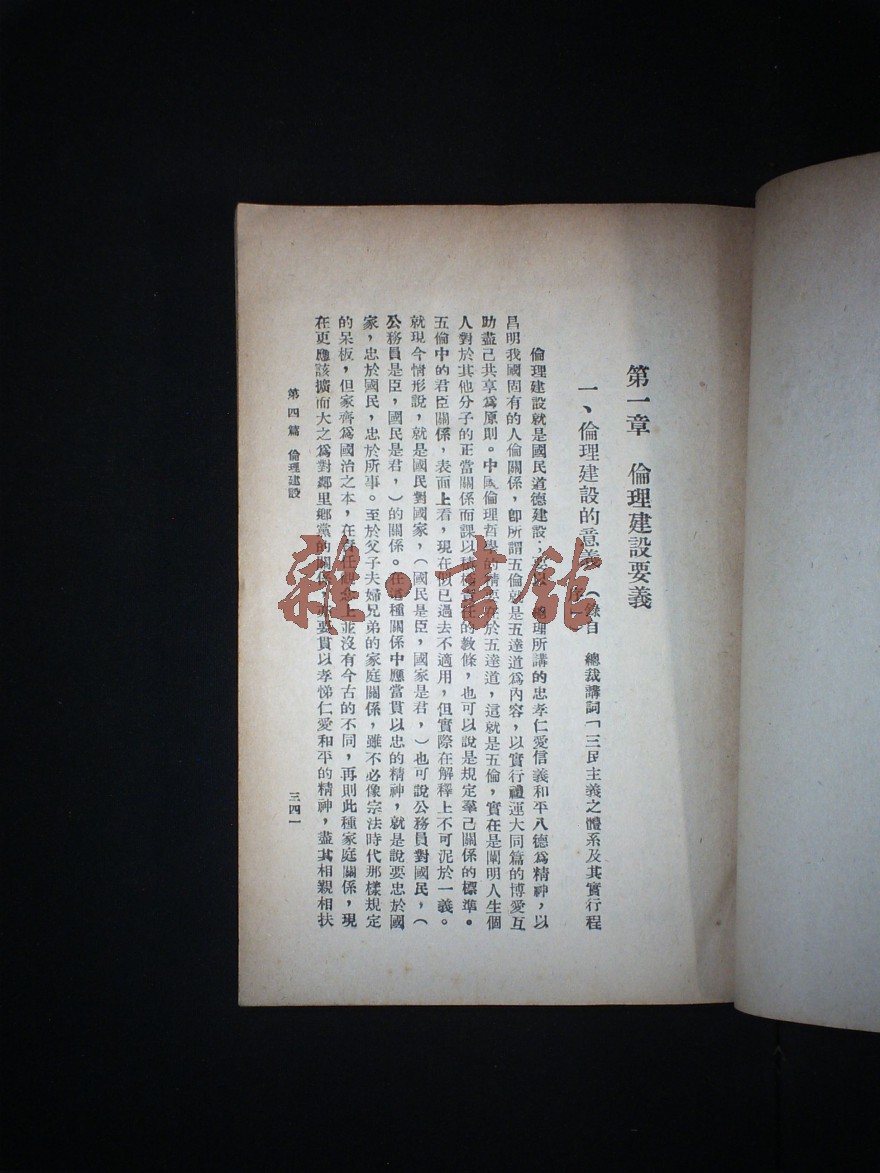 第一章 倫理建設要義
一、倫理建設的意義（錄自 總裁講詞「三民主義之體系及其實行程序
倫理建設就是國民道德建設，要以 總理所講的忠孝仁愛信義和平八德爲精神，以
昌明我國固有的人倫關係，卽所謂五倫就是五達道爲內容，以實行禮運大同篇的博愛互
助盡己共享爲原則。中國倫理哲學的精要在於五達道，這就是五倫，實在是闡明人生個
人對於其他分子的正當關係而課以積極責任的敎條，也可以說是規定羣己關係的標準。
五倫中的君臣關係，表面上看，現在似已過去不適用，但實際在解釋上不可泥於一義。
就現今情形說，就是國民對國家，（國民是臣，國家是君，）也可說公務員對國民，（
公務員是臣，國民是君，）的關係。在這種關係中應當貫以忠的精神，就是說要忠於國
家，忠於國民，忠於所事。至於父子夫婦兄弟的家庭關係，雖不必像宗法時代那樣規定
的呆板，但家齊爲國治之本，在責任觀念上並沒有今古的不同，再則此種家庭關係，現
在更應該擴而大之爲對鄰里鄉黨的關係，要貫以孝悌仁愛和平的精神，盡其相親相扶
第四篇 倫理建設
三四一
雜·書館